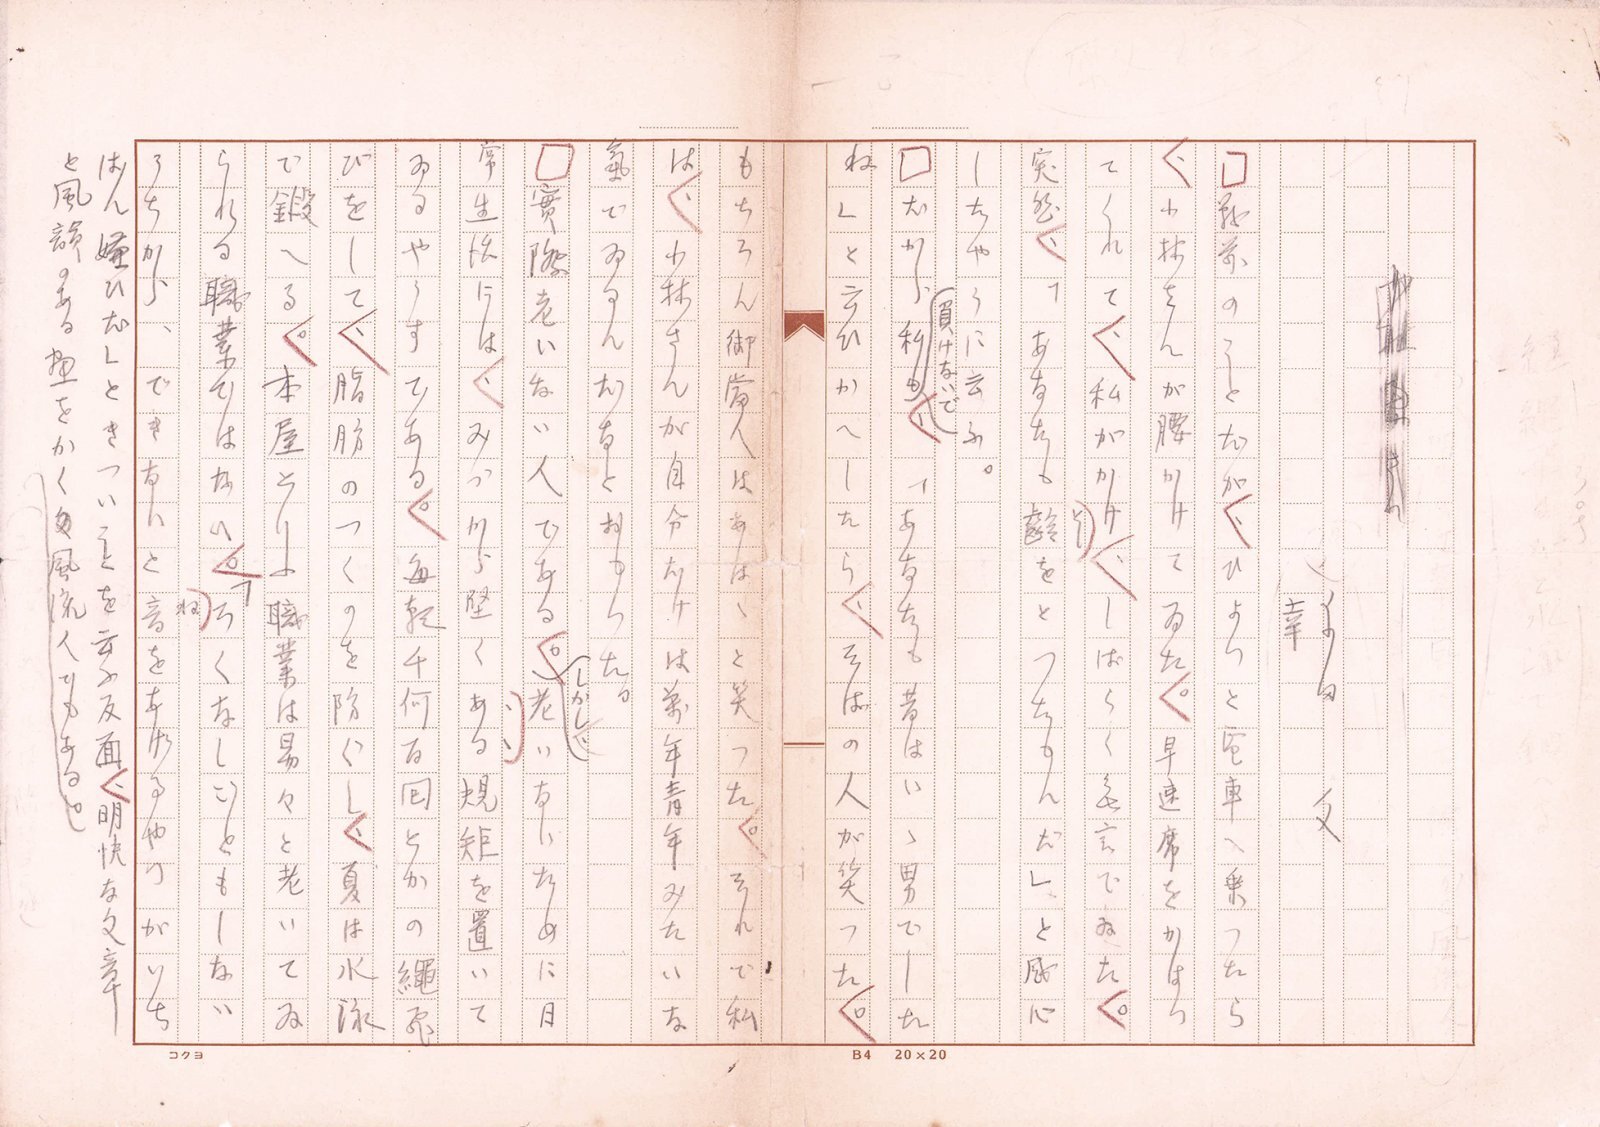 幸田文
□戰前のことだが、ひよつと電車へ乗つたら
、小林さんが腰かけてゐた。早速席をかはつ
てくれて、私がかけ、しばらく無言でゐた。
突然、「あなたも齢をとつたもんだ」と感心
したやうに云ふ。
□だから私も、負けないで「あなたも昔はいゝ男でした
ね」と云ひかへしたら、そばの人が笑つた。
もちろん御當人はあはゝと笑つた。それで私
は、小林さんが自分だけは萬年青年みたいな
氣でゐるんだなとおもつた。
□實際老いない人である。しかし、老いないために日
常生活には、みづから堅くある規矩を置いて
ゐるやうすである。毎朝千何百回とかの繩飛
びをして、脂肪のつくのを防ぐし、夏は水泳
で鍛へる。本屋といふ職業は易々と老いてゐ
られる職業ではない。「ろくなしごともしない
うちから、できないと音をあげるやつがいち
ばん嫌ひだ」ときついことを云ふ反面、明快な文章
と風韻のある画をかく風流人でもある。
コクヨ
B4 20×20